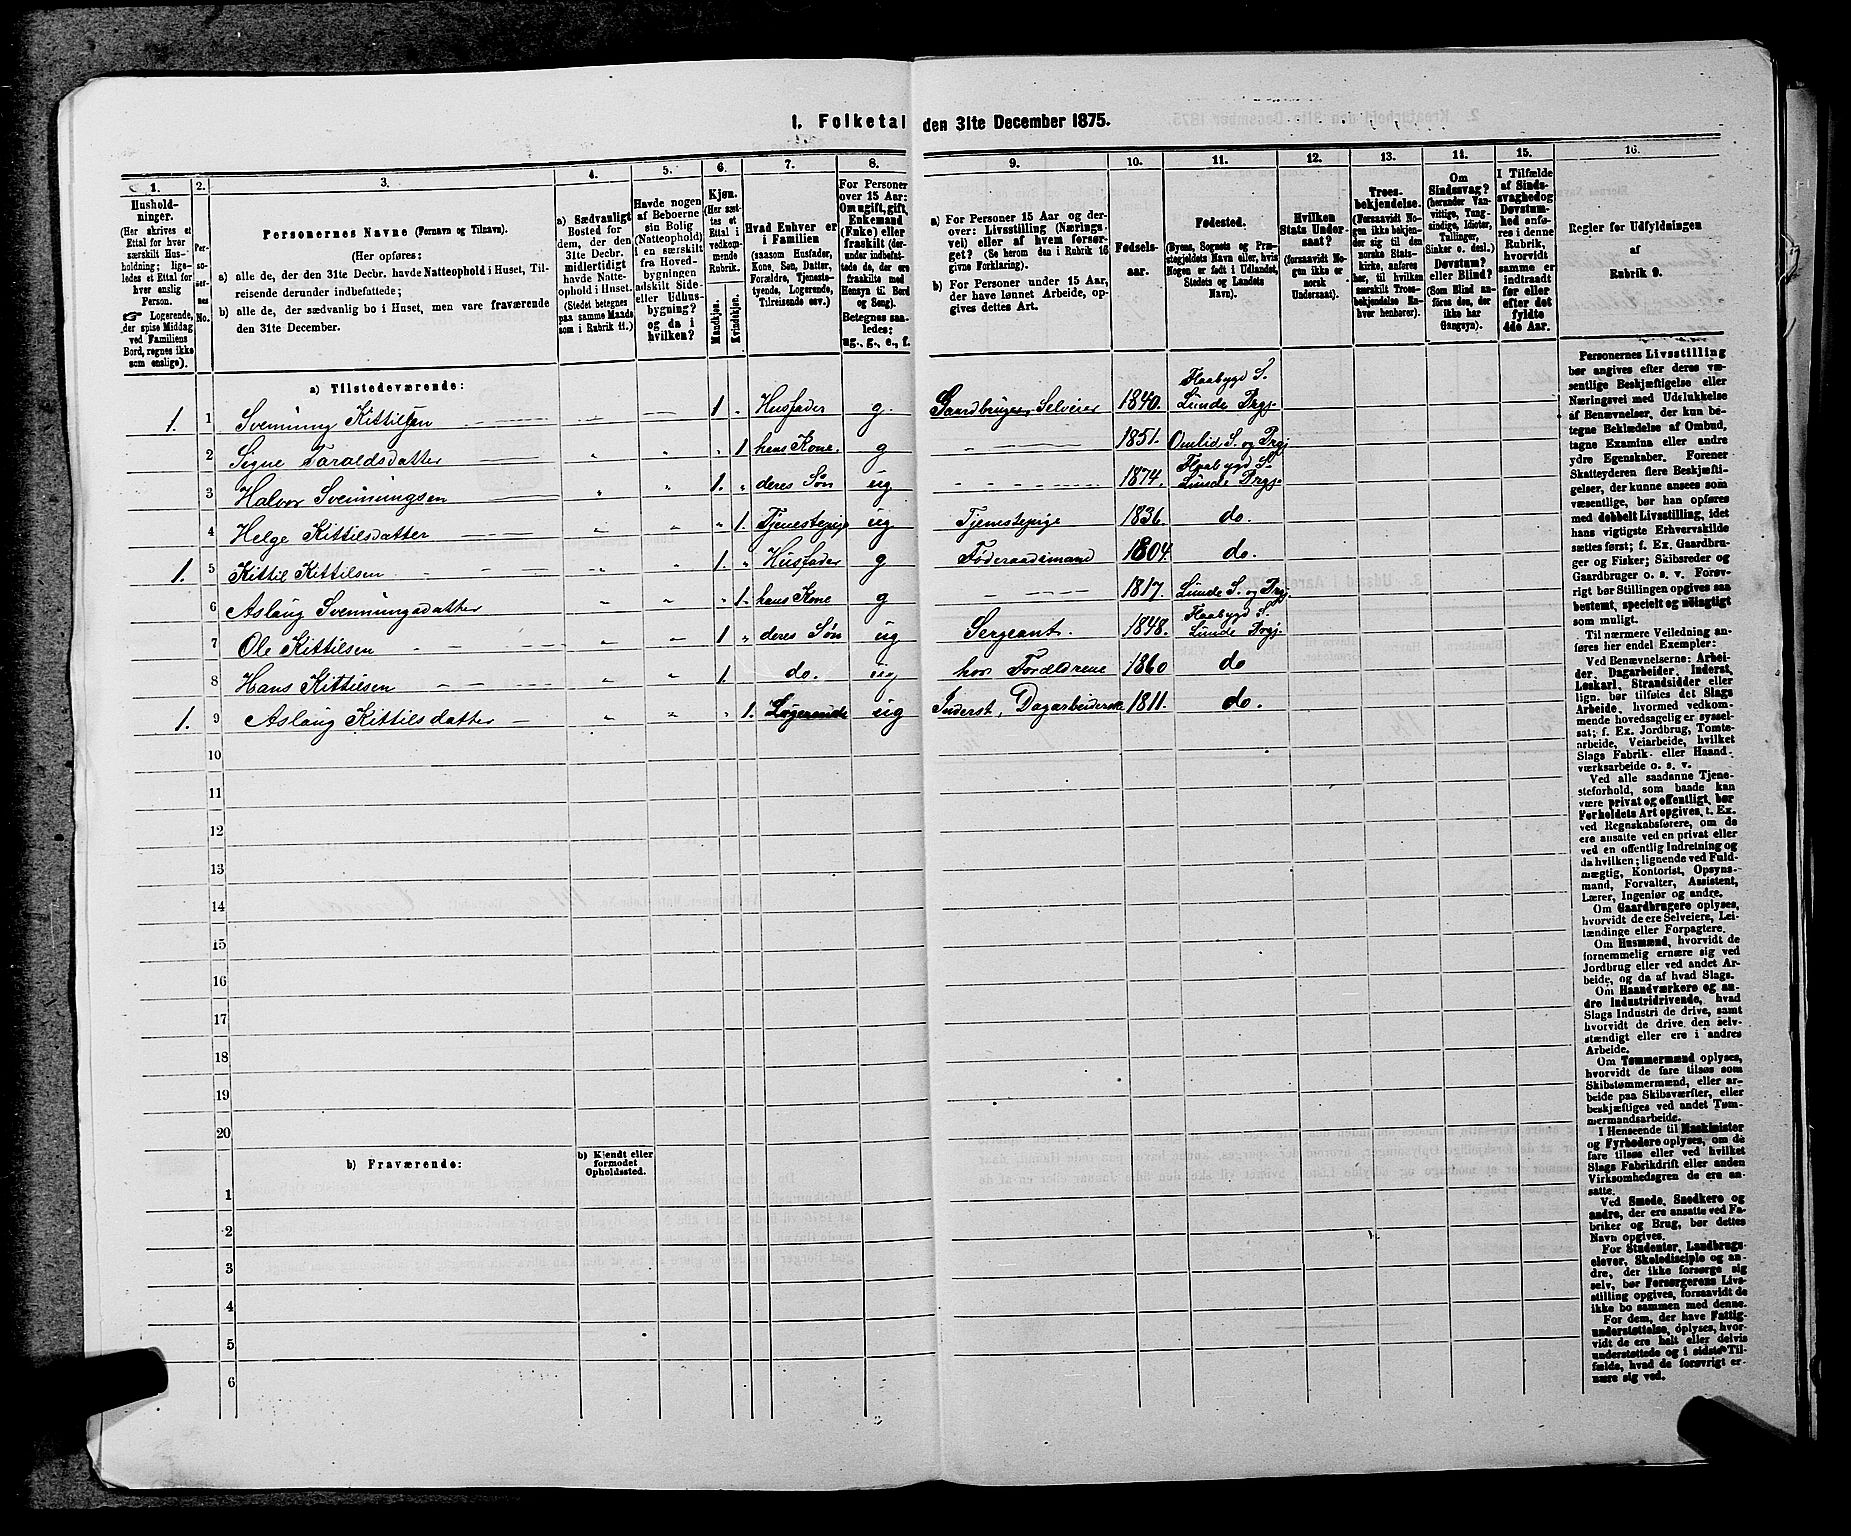 1. Folketal den 31te December 1875.
1.
Hushold-
ninger.
(Her skrives et
Ettal for hver
særskilt Hus-
holdning; lige-
ledes et Ettal for
hver enslig
Person.
☞ Logerende,
der spise Middag
ved Familiens
Bord, regnes ikke
som enslige).
2.
Per-
so-
ner-
nes
No.
3.
Personernes Navne (Fornavn og Tilnavn).
(Her opføres:
a) alle de, der den 31te Decbr. havde Natteophold i Huset, Til-
reisende derunder indbefattede;
b) alle de, der sædvanlig bo i Huset, men vare fraværende
den 31te December.
4.
a) Sædvanligt
Bosted for
dem, der den
31te Decbr.
midlertidigt
havde Natte-
ophold i Huset.
(Stedet betegnes
paa samme Maade
som i Rubrik 11.)
5.
Havde nogen
af Beboerne
sin Bolig
(Natteophold)
i en særskilt
fra Hoved-
bygningen
adskilt Side-
eller Udhus-
bygning?
og da i
hvilken?
6.
Kjøn.
(Her sæt-
tes et
Ettal i
vedkom-
mende
Rubrik.
Mandkjøn.
Kvindekjøn.
7.
Hvad Enhver er
i Familien
(saasom Husfader,
Kone, Søn, Datter,
Forældre, Tjeneste-
tyende, Logerende,
Tilreisende osv.)
8.
For Personer
over 15 Aar:
Om ugift, gift,
Enkemand
(Enke) eller
fraskilt (der-
under indbefat-
tede de, der ere
fraskilte med
Hensyn til Bord
og Seng).
Betegnes saa-
ledes:
ug., g., e., f.
9.
a) For Personer 15 Aar og der-
over: Livsstilling (Nærings-
vei) eller af hvem forsør-
get? (Se herom den i Rubrik 16
givne Forklaring).
b) For Personer under 15 Aar,
der have lønnet Arbeide, op-
gives dettes Art.
10.
Fødsels-
aar.
11.
Fødested.
(Byens, Sognets og Præ-
stegjeldets Navn eller, hvis
Nogen er født i Udlandet,
Stedets og Landets
Navn).
12.
Hvilken
Stats Under-
saat?
(forsaavidt No-
gen ikke er
norsk
Undersaat).
13.
Troes-
bekjendelse.
(Forsaavidt No-
gen ikke bekjen-
der sig til den
norske Stats-
kirke, anføres
her, til hvilken
særskilt Troes-
bekjendelse En-
hver henhører).
14.
Om
Sindssvag?
(herunder Van-
vittige, Tung-
sindige, Idioter,
Tullinger,
Sinker o. desl.)
Døvstum?
eller Blind?
(Som Blind an-
føres den, der
ikke har
Gangsyn).
15.
I Tilfælde
af Sinds-
svaghed og
Døvstum-
hed anfø-
res i denne
Rubrik,
hvorvidt
samme er
indtraadt
før eller
efter det
fyldte
4de Aar.
16.
Regler for Udfyldningen
af
Rubrik 9.
a) Tilstedeværende:
1. 1 Svenning Kittilsen 1 Husfader g. Gaardbruger, Selveier 1840. Flaabygd S. Lunde Prgj.
2 Signe Taraldsdatter 1 hans Kone. g 1851. Omlid S. og Prgj
3 Halvor Svenningsen 1. deres Søn ug 1874. Flaabygd S. Lunde Prgj.
4 Helge Kittilsdatter 1. Tjenestepige ug Tjenestepige 1836. do.
1. 5 Kittil Kittilsen 1. Husfader g Føderaadsmand 1804. do.
6 Aslaug Svenningsdatter 1. hans Kone g 1817. Lunde S. og Prgj.
7 Ole Kittilsen 1 deres Søn ug Sergeant. 1848. Flaabygd S. Lunde Prgj.
8 Hans Kittilsen 1. do. ug hos Forældrene 1860 do
1. 9 Aslaug Kittilsdatter 1. Logerende ug Inderst, Dagarbeiderske 1811. do.
10
11
12
13
14
15
16
17
18
19
20
b) Fraværende:
b) Kjendt eller
formodet
Opholdssted.
1
2
3
4
5
6
Personernes Livsstilling
bør angives efter deres væ-
sentlige Beskjæftigelse eller
Næringsvei med Udelukkelse
af Benævnelser, der kun be-
tegne Beklædelse af Ombud,
tagne Examina eller andre
ydre Egenskaber. Forener
Skatteyderen flere Beskjæfti-
gelser, der kunne ansees som
væsentlige, bør han opføres
med dobbelt Livsstilling, idet
hans vigtigste Erhvervskilde
sættes først; f. Ex. Gaardbru-
ger og Fisker; Skibsreder og
Gaardbruger o. s. v. Forøv-
rigt bør Stillingen opgives saa
bestemt, specielt og nøiagtigt
som muligt.
Til nærmere Veiledning an-
føres her endel Exempler:
Ved Benævnelserne: Arbei-
der, Dagarbeider, Inderst,
Løskarl, Strandsidder eller
lign. bør tilføies det Slags
Arbeide, hvormed vedkom-
mende hovedsagelig er syssel-
sat; f. Ex. Jordbrug, Tomte-
arbeide, Veiarbeide, hvilket
Slags Fabrik- eller Haand-
værksarbeide o. s. v.
Ved alle saadanne Tjene-
steforhold, som baade kan
være privat og offentligt, bør
Forholdets Art opgives, t. Ex.
ved Regnskabsførere, om de
ere ansatte ved en privat eller
ved en offentlig Indretning og
da hvilken; lignende ved Fuld-
mægtig, Kontorist, Opsyns-
mand, Forvalter, Assistent,
Lærer, Ingeniør og andre.
Om Gaardbrugere oplyses,
hvorvidt de ere Selveiere, Lei-
lændinge eller Forpagtere.
Om Husmænd, hvorvidt de
fornemmelig ernære sig ved
Jordbrug eller ved andet Ar-
beide, og da af hvad Slags.
Om Haandværkere og an-
dre Industridrivende, hvad
Slags Industri de drive, samt
hvorvidt de drive den selv-
stændigt eller ere i andres
Arbeide.
Om Tømmermænd oplyses,
hvorvidt de fare tilsøs som
Skibstømmermænd, eller ar-
beide paa Skibsværfter, eller
beskjæftiges ved andet Tøm-
mermandsarbeide.
I Henseende til Maskinister
og Fyrbødere oplyses, om de
fare tilsøs eller ved hvilket
Slags Fabrikdrift eller anden
Virksomhedsgren de ere an-
satte.
Ved Smede, Snedkere og
andre, der ere ansatte ved Fa-
briker og Brug, bør dettes
Navn opgives.
For Studenter, Landbrugs-
elever, Skoledisciple og an-
dre, der ikke forsørge sig
selv, bør Forsørgerens Livs-
stilling opgives, forsaavidt de
ikke bo sammen med denne.
For dem, der have Fattig-
understøttelse, oplyses, hvor-
vidt de ere helt eller delvis
understøttede og i sidste Til-
fælde, hvad de forøvrigt er-
nære sig ved.